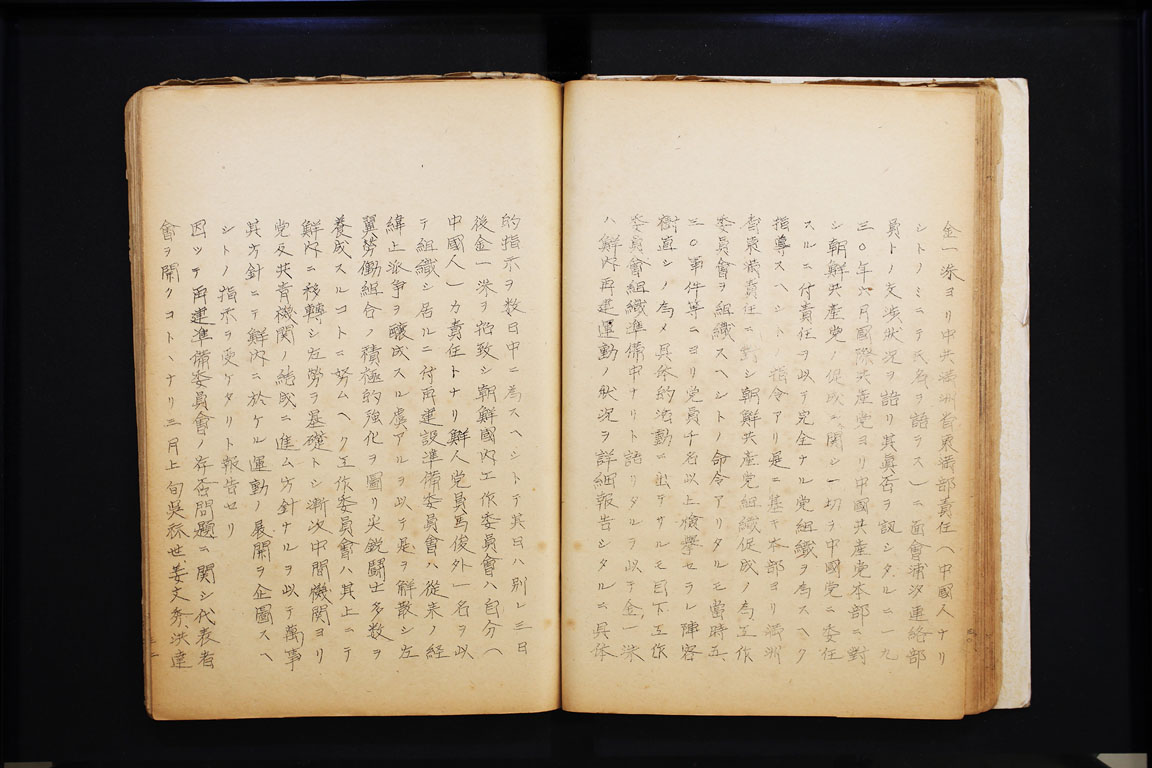 金一洙ヨリ中共満洲省東満部責任(中國人ナリ
シトノミニテ氏名ヲ語ラス)ニ面會浦汐連絡部
員トノ交渉状況ヲ語リ其真否ヲ訊シタルニ一九
三〇年六月國際共産党ヨリ中國共産党本部ニ對
シ朝鮮共産党ノ促成ニ関シ一切ヲ中國党ニ委任
スルニ付責任ヲ以テ完全ナル党組織ヲ為スヘク
指導スヘシトノ指令アリ是ニ基キ本部ヨリ満洲
省東満責任ニ對シ朝鮮共産党組織促成ノ為工作
委員會ヲ組織スヘシトノ命令アリタルモ當時五、
三〇事件等ニヨリ党員十名以上検擧セラレ陣容
樹直シノ為メ具体的活動ニ出テサルモ目下工作
委員會組織準備中ナリト語リタルヲ以テ金一洙
ハ鮮内再建運動ノ状況ヲ詳細報告シタルニ具体
的指示ヲ数日中ニ為スヘシトテ其日ハ別レ三日
後金一洙ヲ招致シ朝鮮國内工作委員會ハ自分(
中國人)カ責任トナリ鮮人党員馬俊外一名ヲ以
テ組織シ居ルニ付再建設準備委員會ハ従来ノ経
緯上派争ヲ醸成スル虞アルヲ以テ是ヲ解散シ左
翼労働組合ノ積極的強化ヲ圖リ尖鋭闘士多数ヲ
養成スルコトニ努ムヘク工作委員會ハ其上ニテ
鮮内ニ移轉シ左労ヲ基礎トシ漸次中間機関ヨリ
党及共青機関ノ結成ニ進ム方針ナルヲ以テ萬事
其方針ニテ鮮内ニ於ケル運動ノ展開ヲ企圖スヘ
シトノ指示ヲ受ケタリト報告セリ
因ッテ再建準備委員會ノ存否問題ニ関シ代表者
會ヲ開クコトヽナリ三月上旬呉祘世、姜文秀、洪達